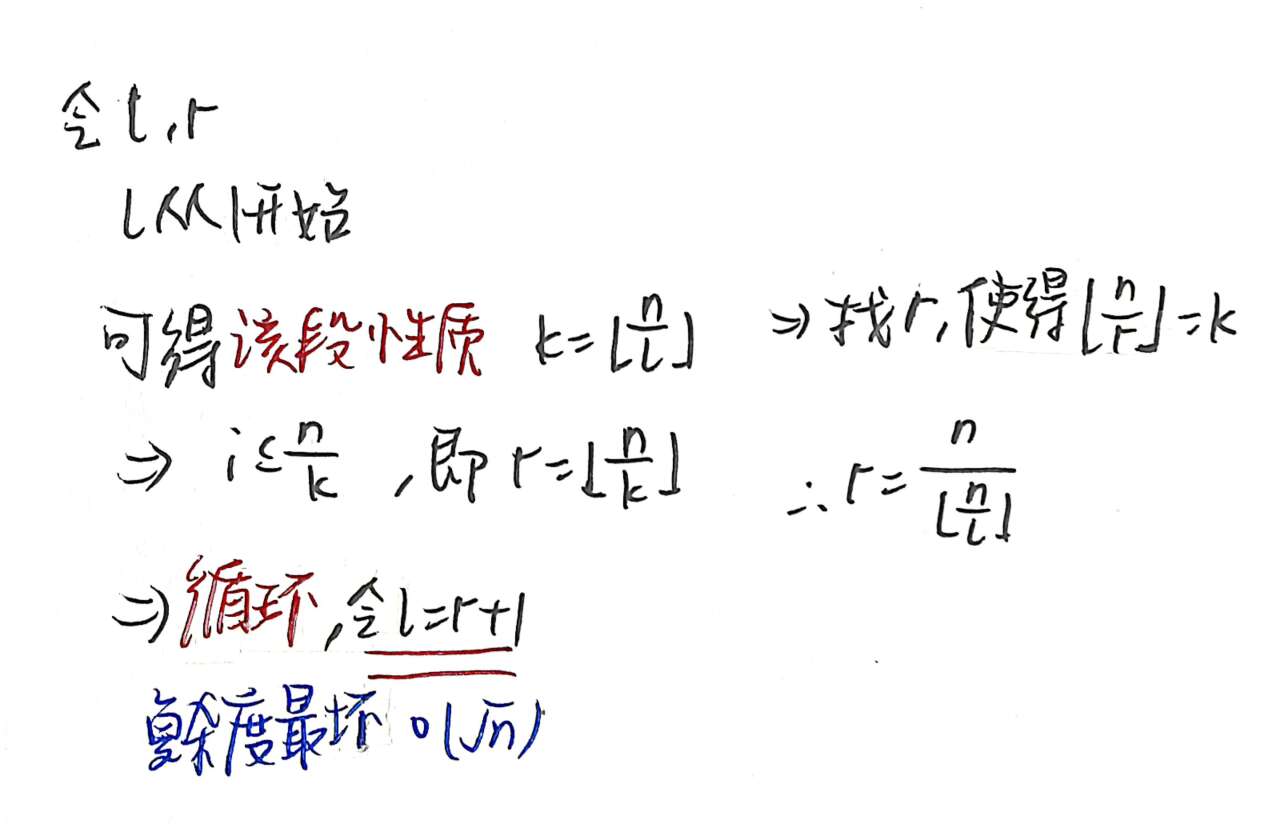 令 l,r
l从1开始
可得该段性质 k=⌊n/l⌋ ⇒ 找r,使得⌊n/r⌋=k
⇒ i≤n/k ,即 r=⌊n/k⌋ ∴ r=n/⌊n/l⌋
⇒ 循环,令l=r+1
复杂度最坏 O(√n)